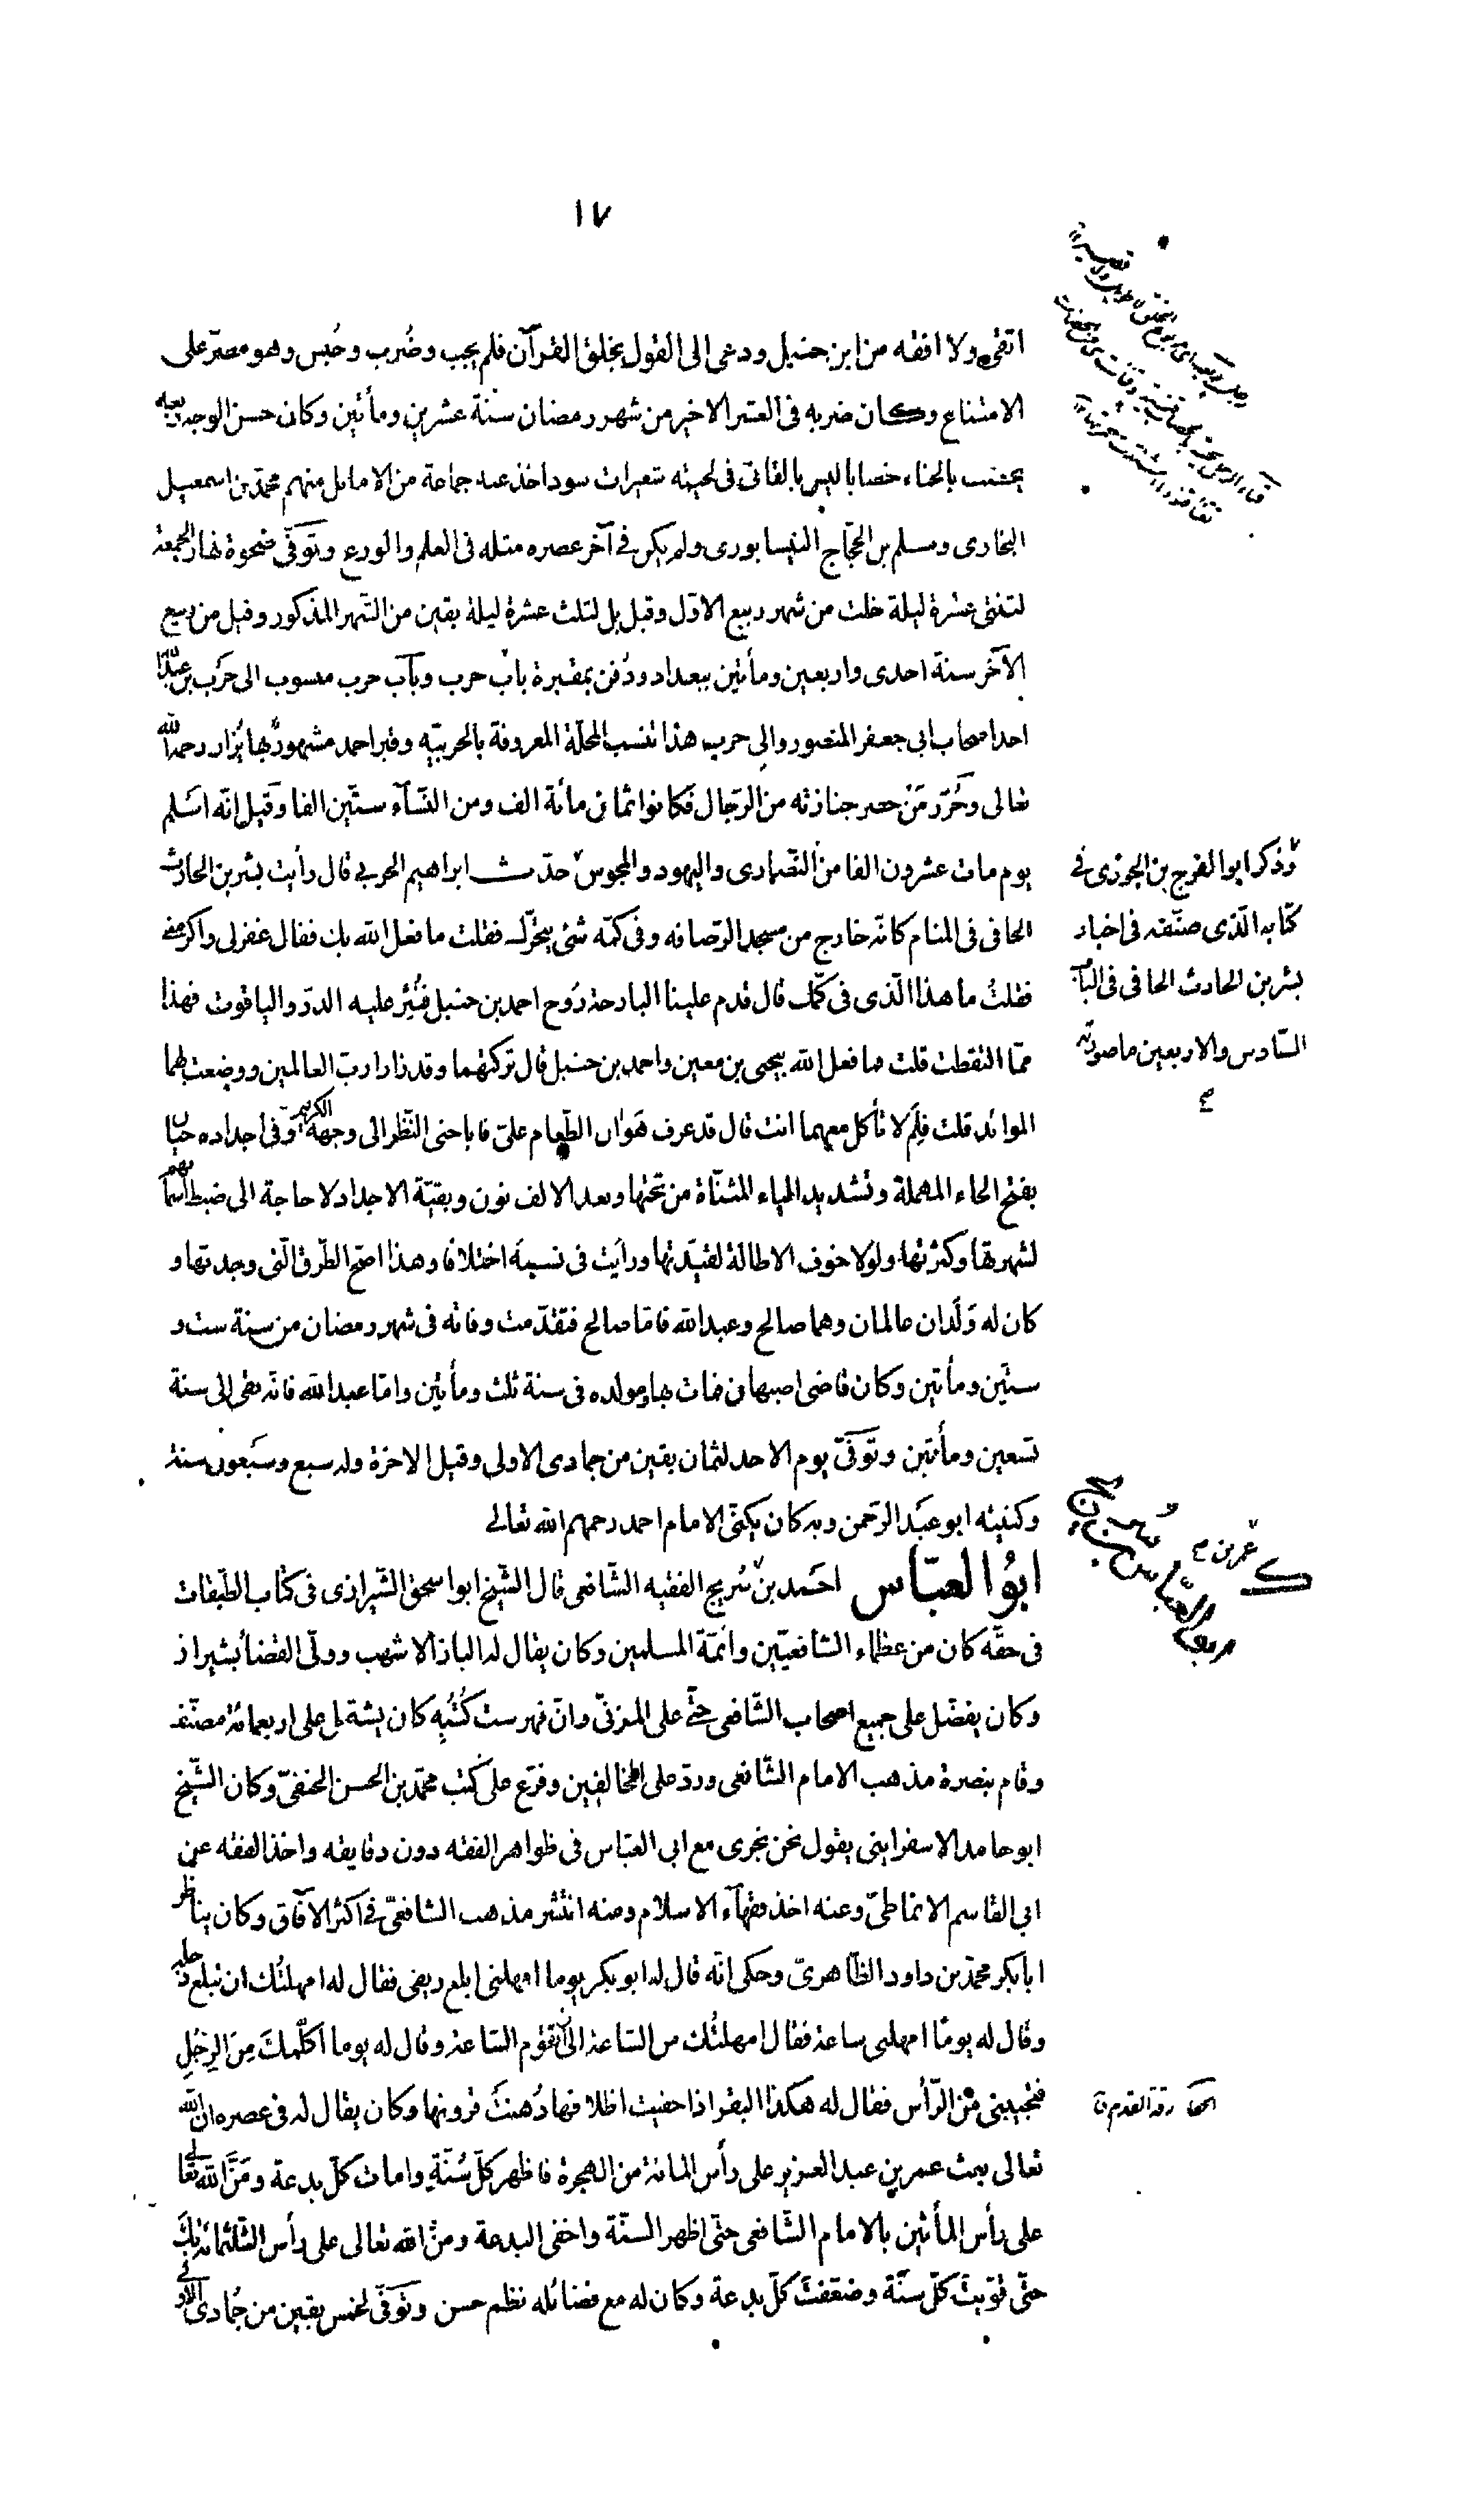 ١٧
اتقى ولا افقه من ابن حنبل ودعى الى القول بخلق القرآن فلم يجب وضُرب وحُبس وهو مصرّ على
الامتناع وكان ضربه فى العشر الاخير من شهر رمضان سنة عشرين ومأتين وكان حسن الوجه ربعه
يخضب بالحناء خضابا ليس بالقانى فى لحيته شعيرات سود اخذ عنه جماعة من الاماثل منهم محمّد بن اسمعيل
البخارى ومسلم بن الحجّاج النيسابورى ولم يكن فى آخر عصره مثله فى العلم والورع وتوفّى ضحوة نهار الجمعة
لثنتى عشرة ليلة خلت من شهر ربيع الاوّل وقيل بل لثلث عشرة ليلة بقين من الشهر المذكور وقيل من ربيع
الآخر سنة احدى واربعين ومأتين ببغداد ودُفن بمقبرة باب حرب وباب حرب منسوب الى حَرب بن عبد الله
احد اصحاب ابى جعفر المنصور والى حرب هذا تنسب المحلّة المعروفة بالحربيّه وقبر احمد مشهورٌ بها يُزار رحمه الله
تعالى وحُزّر مَنْ حضر جنازته من الرّجال فكانوا ثمان مائة الف ومن النّسآء ستّين الفا وقيل انّه اسَلم
يوم مات عشرون الفا من النّصارى واليهود والمجوس حدّث ابراهيم الحربى قال رأيت بشر بن الحارث
الحافى فى المنام كانّه خارج من مسجد الرّصافه وفى كمّه شئ يتحرّك فقلت ما فعل الله بك فقال غفر لى واكرمنى
فقلتُ ما هذا الّذى فى كمّك قال قدم علينا البارحة رَوح احمد بن حنبل فنُثر عليه الدرّ والياقوت فهذا
ممّا التقطت قلت ما فعل الله بيحيى بن معين واحمد بن حنبل قال تركتهما وقد زارا ربّ العالمين ووضعت لهما
الموائد قلت فلِمَ لا تأكل معهما انت قال قد عرف هَوان الطّعام علىّ فاباحنى النّظر الى وجهه الكريم وفى اجداده حيّان
بفتح الحاء المهملة وتشديد الياء المثنّاة من تحتها وبعد الالف نون وبقيّة الاجداد لا حاجة الى ضبط اسمآئهم
لشهرتها وكثرتها ولولا خوف الاطالة لقيّدتها ورأيت فى نسبه اختلافا وهذا اصحّ الطّرق الّتى وجدتها و
كان له وَلَدان عالمان وهما صالح وعبد الله فامّا صالح فتقدّمت وفاته فى شهر رمضان من سنة ست و
ستّين ومأتين وكان قاضى اصبهان فمات بها ومولده فى سنة ثلث ومأتين وامّا عبد الله فانّه بقى الى سنة
تسعين ومأتين وتوفّى يوم الاحد لثمان بقين من جمادى الاولى وقيل الاخرة وله سبع وسبعون سنة
وكنيته ابو عبَد الرّحمن وبه كان يكنّى الامام احمد رحمهم الله تعالى
ابوُ العبّاس احمَد بن سُريج الفقيه الشّافعى قال الشّيخ ابو اسحق الشّيرازى فى كتاب الطّبقات
فى حقّه كان من عظماء الشّافعيّين وائمّة المسلمين وكان يقال له الباز الاشهب وولّى القضأ بشيراز
وكان يفضّل على جميع اصحاب الشّافعى حتّى على المزنىّ وانّ فهرست كُتُبِه كان يشتمل على اربعمائة مصنّف
وقام بنصرة مذهب الامام الشّافعى وردّ على المخالفين وفرّع على كتب محمّد بن الحسن الحنفىّ وكان الشّيخ
ابو حامد الاسفراينى يقول نحن نجرى مع ابى العبّاس فى ظواهر الفقه دون دقايقه واخذ الفقه عن
ابى القاسم الانماطىّ وعنه اخذ فقهآء الاسلام ومنه انتشر مذهب الشافعىّ فى اكثر الآفاق وكان يناظر
ابا بكر محمّد بن داود الظّاهرىّ وحكى انّه قال له ابو بكر يوما امهلنى ابلع ريقى فقال له امهلتُك ان تبلع دجله
وقال له يومًا امهلنى ساعة فقال امهلتُك من السّاعة الى ان تقوم السّاعة وقال له يوما اكلّمكَ مِنَ الرِجْلِ
فتجيبنى من الرّأس فقال له هكذا البقر اذا حفيت اظلافها دُهنَتْ قرونها وكان يقال له فى عصره انّ الله
تعالى بعث عمر بن عبد العزيز على رأس المائة من الهجرة فاظهر كلّ سُنّةٍ وامات كلّ بدعة ومَنَّ الله تعالى
على رأس المأتين بالامام الشّافعى حتّى اظهر السّنّة واخفى البدعة ومنّ الله تعالى على رأس الثّلثمائة بك
حتّى قوّيتَ كلّ سنّة وضعّفتَ كلّ بدعة وكان له مع فضائله نظم حسن وتوفّى لخمس بقين من جُمادى الاولى
وذكر ابو الفرج بن الجوزى فى
كتابه الّذى صنّفه فى اخبار
بشر بن الحارث الحافى فى الباب
السّادس والاربعين ما صورته
صح
عمر بن
ابو العبّاس بن سُريج
الحفا رقة القدم ق